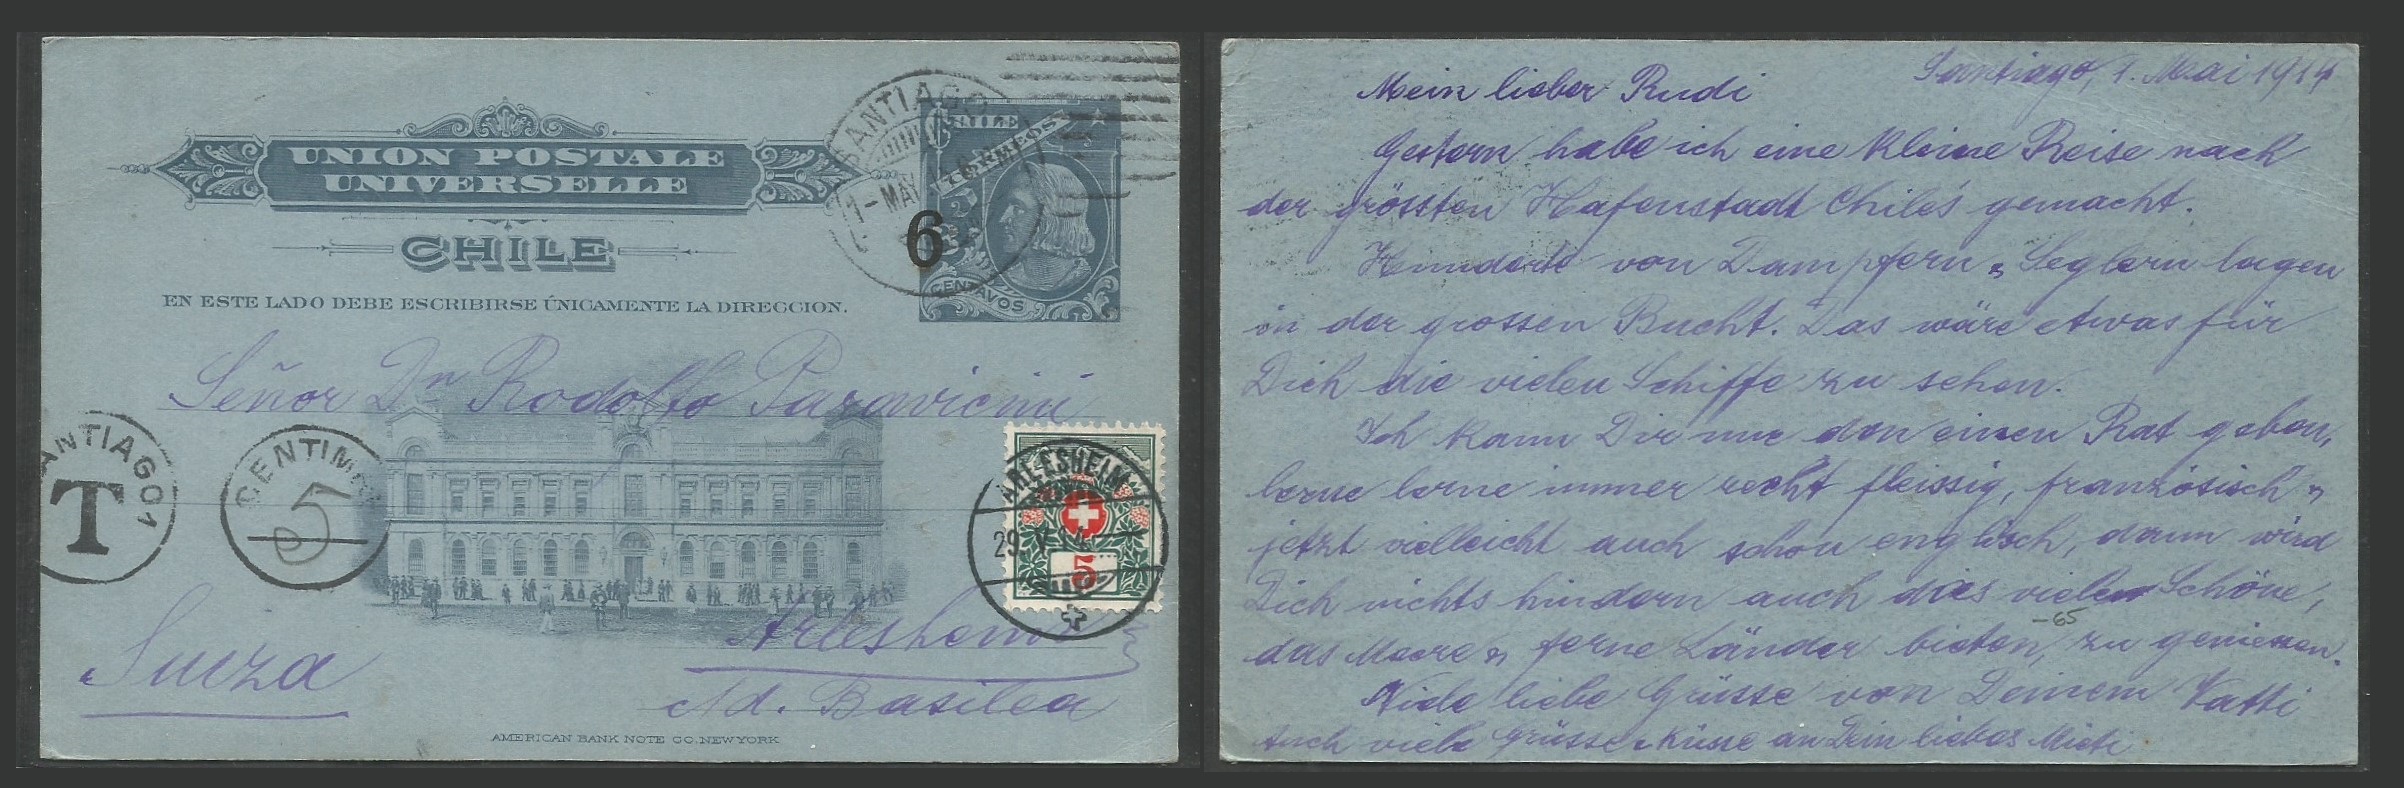 UNION POSTALE
UNIVERSELLE
CHILE
EN ESTE LADO DEBE ESCRIBIRSE ÚNICAMENTE LA DIRECCION.
CHILE
CENTAVOS
SANTIAGO
1-MAY
6
Señor Dn Rodolfo Paravicini
SANTIAGO 1
T
CENTIM
5
ARLESHEIM
29. V. 14
5
Arlesheim
Suiza
Ad. Basilea
AMERICAN BANK NOTE CO. NEW YORK
Santiago, 1. Mai 1914
Mein lieber Rudi
Gestern habe ich eine kleine Reise nach
der grössten Hafenstadt Chile's gemacht.
Hunderte von Dampfern & Seglern lagen
in der grossen Bucht. Das wäre etwas für
Dich die vielen Schiffe zu sehen.
Ich kann Dir nur den einen Rat geben,
lerne lerne immer recht fleissig, französisch &
jetzt vielleicht auch schon englisch, dann wird
Dich nichts hindern auch dies viele Schöne,
-65
das Meere & ferne Länder bieten, zu geniessen.
Viele liebe Grüsse von Deinem Vatti
Auch viele Grüsse & Küsse an Dein liebes Mieti